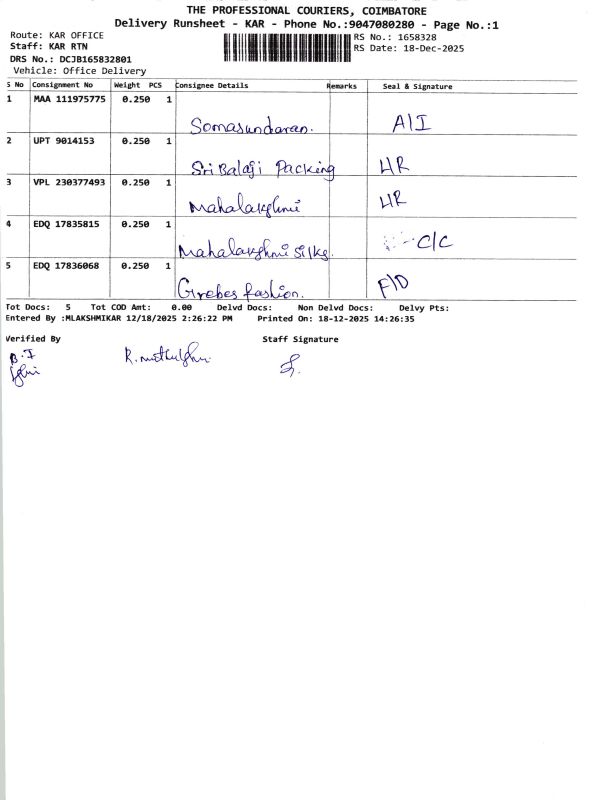 THE PROFESSIONAL COURIERS, COIMBATORE
Delivery Runsheet - KAR - Phone No.:9047080280 - Page No.:1
Route: KAR OFFICE RS No.: 1658328
Staff: KAR RTN RS Date: 18-Dec-2025
DRS No.: DCJB165832801
Vehicle: Office Delivery
S No Consignment No Weight PCS Consignee Details Remarks Seal & Signature
1 MAA 111975775 0.250 1
Somasundaran. A/I
2 UPT 9014153 0.250 1
Sri Balaji Packing HR
3 VPL 230377493 0.250 1
Mahalakshmi HR
4 EDQ 17835815 0.250 1
Mahalakshmi Silks. C/C
5 EDQ 17836068 0.250 1
fashion. F/D
Tot Docs: 5 Tot COD Amt: 0.00 Delvd Docs: Non Delvd Docs: Delvy Pts:
Entered By :MLAKSHMIKAR 12/18/2025 2:26:22 PM Printed On: 18-12-2025 14:26:35
Verified By Staff Signature
B.I